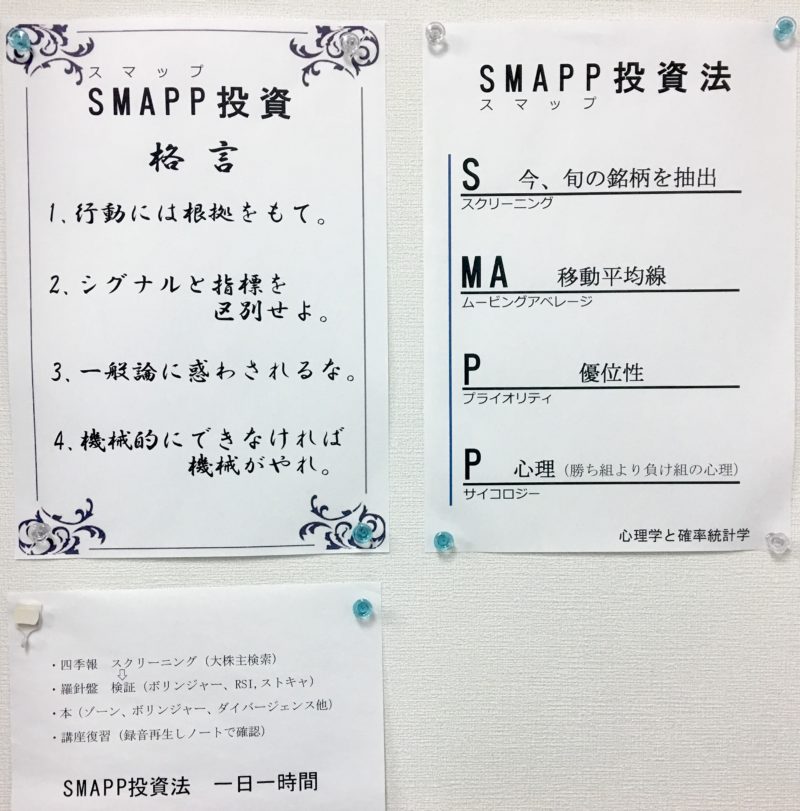 スマップ
SMAPP投資
格言
1、行動には根拠をもて。
2、シグナルと指標を
区別せよ。
3、一般論に惑わされるな。
4、機械的にできなければ
機械がやれ。
SMAPP投資法
スマップ
S 今、旬の銘柄を抽出
スクリーニング
MA 移動平均線
ムービングアベレージ
P 優位性
プライオリティ
P 心理（勝ち組より負け組の心理）
サイコロジー
心理学と確率統計学
・四季報 スクリーニング（大株主検索）
⇩
・羅針盤 検証（ボリンジャー、RSI,ストキャ）
・本（ゾーン、ボリンジャー、ダイバージェンス他）
・講座復習（録音再生しノートで確認）
SMAPP投資法 一日一時間